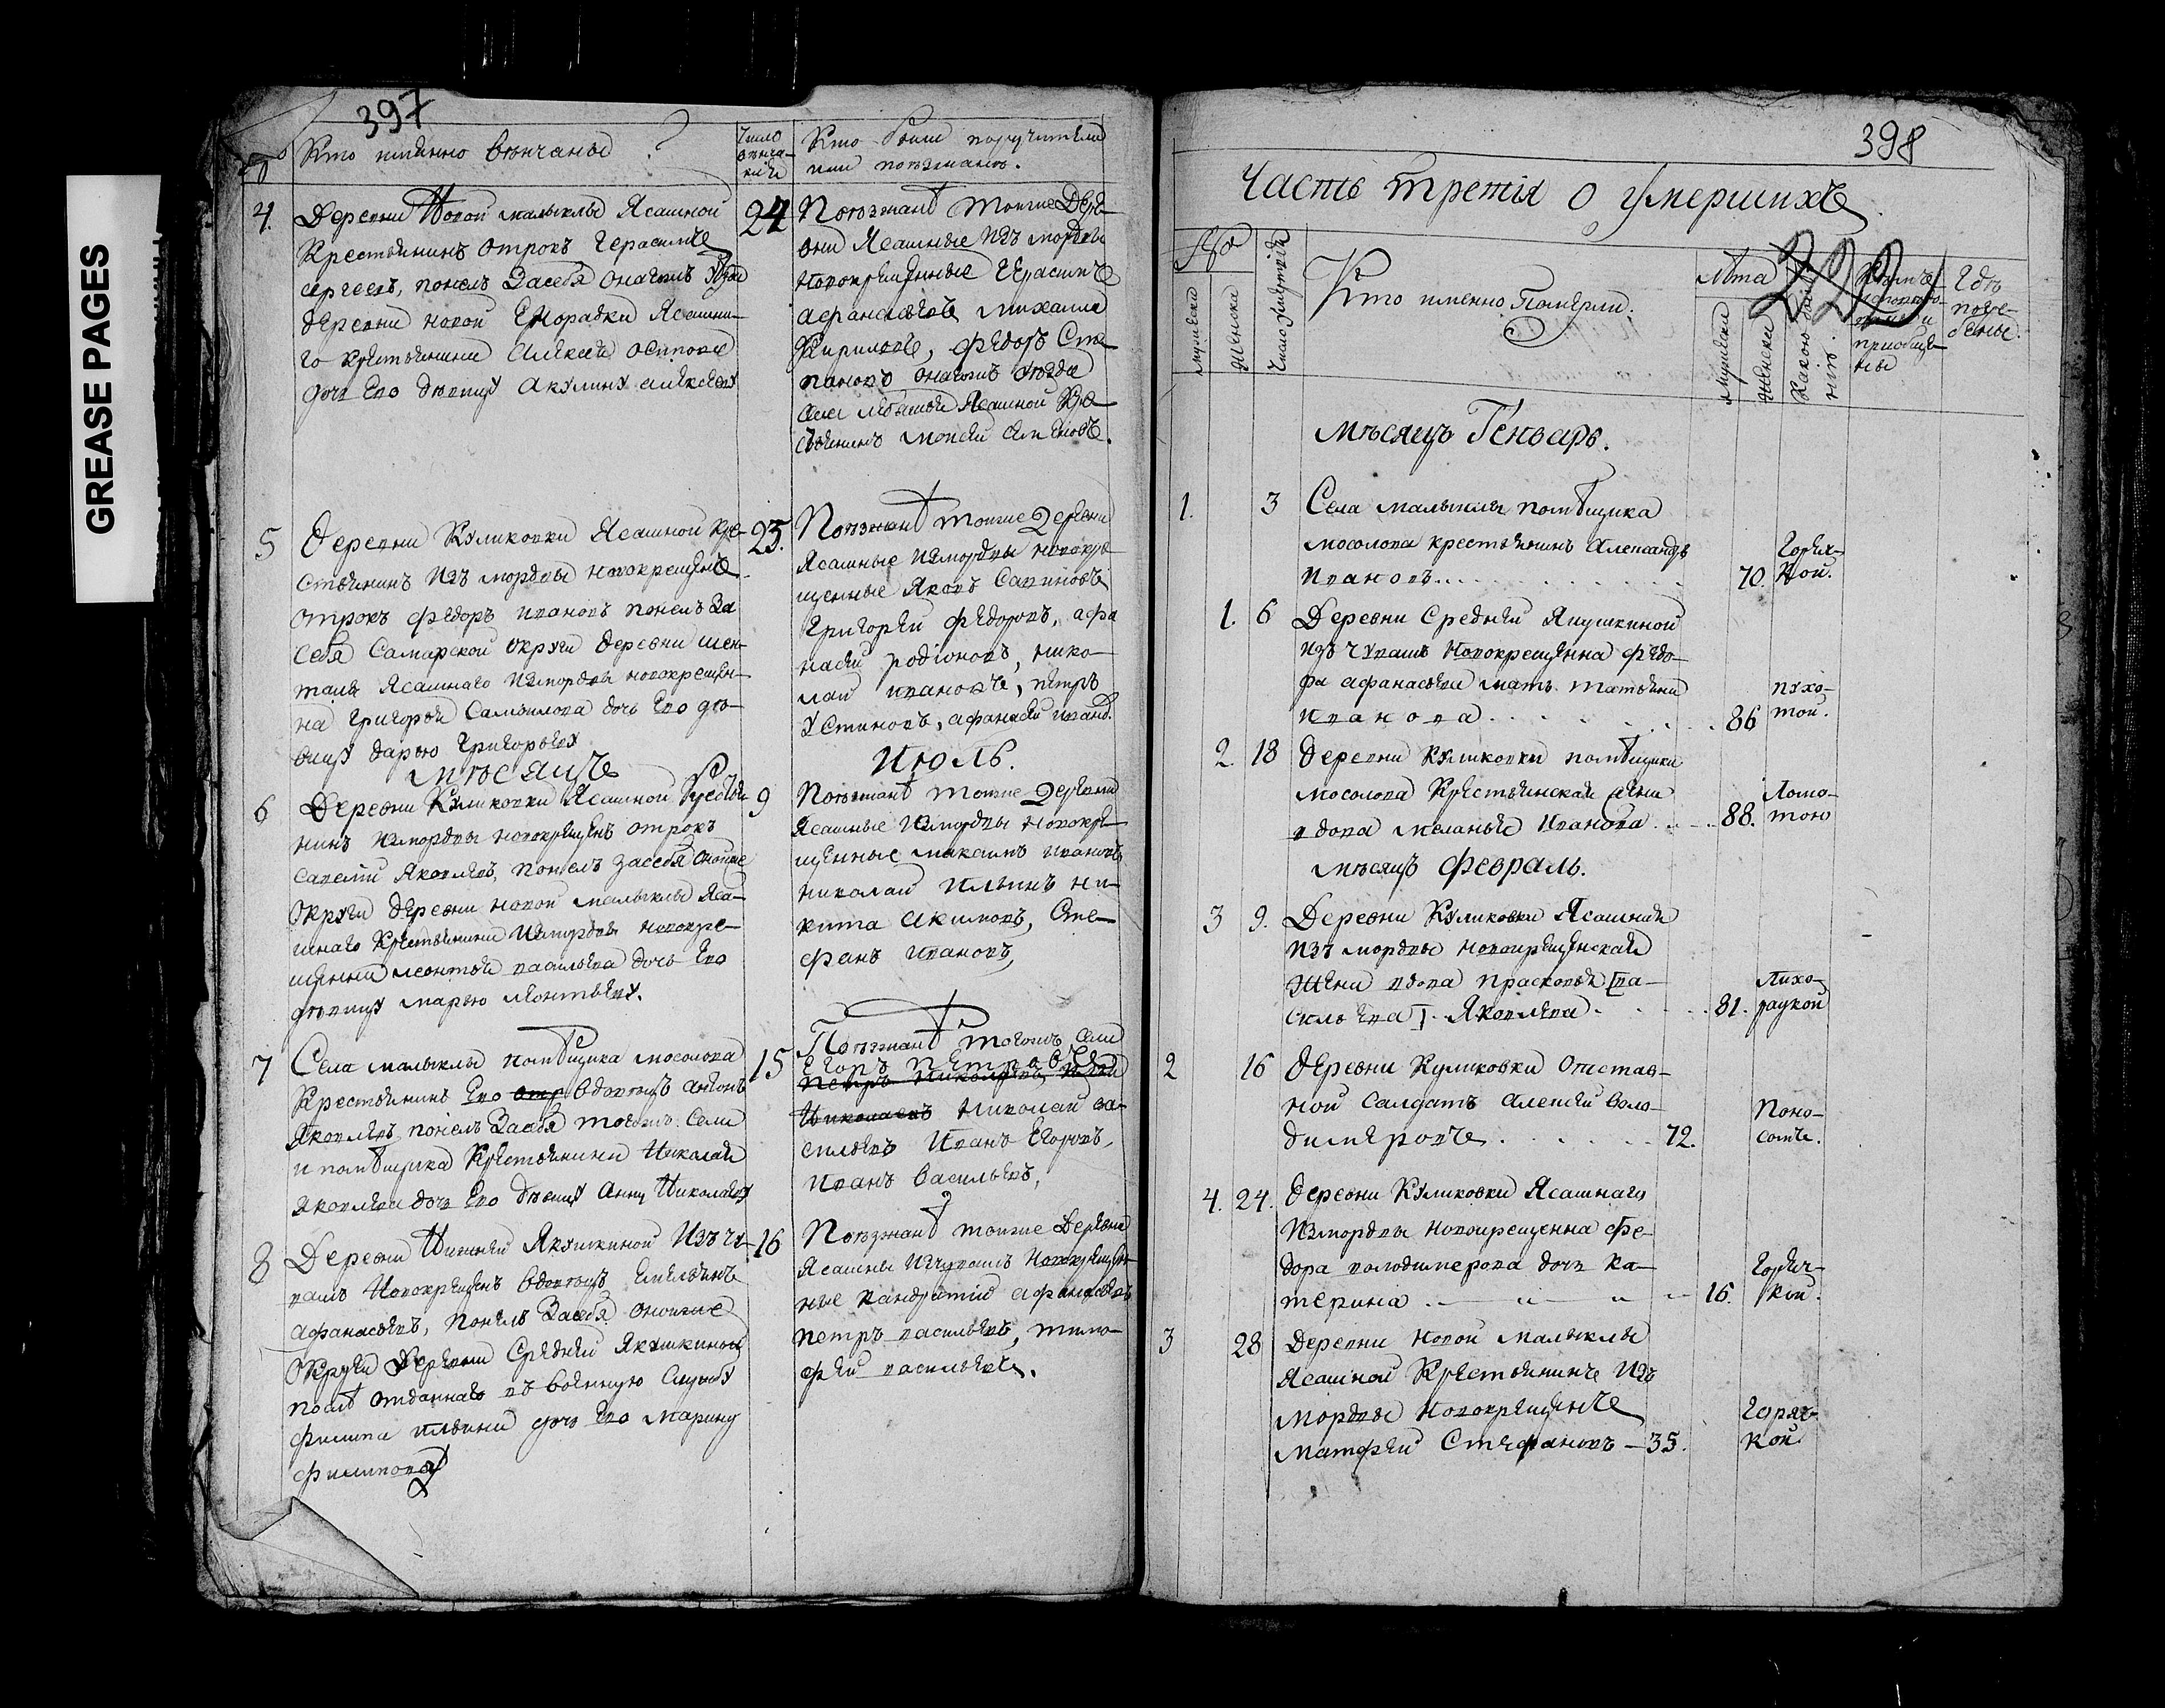 GREASE PAGES
397
№ Кто имянно венчаны ?
Число венча-
ния
Кто были поручители
или поезжанѣ.
4. Деревни Новой малыклы Ясашной
крестьянинъ отрокъ Герасимъ
сергеевъ, понелъ Засебя онагожъ уезда
деревни новой Ясашна-
го крестьянина Алексея осипова
дочь Его девицу Акулину алексееву
24
Поезжанѣ тоеже Дере-
вни Ясашные изъ мордвы
новокрещенные Герасимъ
афанасьевъ михаила
Кириловъ, федоръ Сте-
пановъ онагожъ уезда
Ясашной Кре-
стьянинъ моисей семеновъ.
5 Деревни Куликовки Ясашной кре-
стьянинъ изъ мордвы новокрещенъ
отрокъ федоръ ивановъ понелъ За
себя Самарской округи деревни шен-
талы Ясашнаго измордвы новокрещен-
на Григорья Самойлова дочь Его де-
вицу дарью Григорьеву
25.
Поезжанѣ тоеже Деревни
Ясашные измордвы новокре-
щенные Яковъ Савиновъ
Григорей федоровъ, афа
насей родионовъ, нико-
лай ивановъ, петръ
Устиновъ, афанасей иванѣ.
мѣсяцъ Июль.
6 Деревни Куликовки Ясашной Крестья
нинъ измордвы новокрещенъ отрокъ
савелий Яковлевъ, понелъ засебя оноиже
округи деревни новой малыклы Яса-
шнаго крестьянина измордвы новокре-
щенна леонтья васильева дочь Его
девицу марью леонтьеву.
9
Поезжанѣ тоеже Деревни
Ясашные измордвы новокре-
щенные максимъ ивановъ
николай Ильинъ ни-
кита акимовъ, Сте-
фанъ ивановъ,
7 Села малыклы помѣщика мосолова
Крестьянинъ Его отр вдовецъ антонъ
Яковлевъ понелъ Засебя тогожъ Села
и помѣщика Крестьянина Николая
яковлева дочь Его девицу Анну Николаеву
15
Поезжанѣ тогожъ Села
Егоръ Петровъ
Петръ Николаевъ
Николаевъ Николай ва-
сильевъ Иванъ Егоровъ,
Иванъ Васильевъ,
8 Деревни Нижней Якушкиной Изъ чу-
вашъ Новокрещенъ вдовецъ Емельянъ
афанасьевъ, понелъ Засебя оноиже
Округи Деревни Средней Якушкиной
послѣ отданнаго въ военную Службу
филипа ильина дочь Его Марину
филипову
16
Поезжанѣ тоеже Деревни
Ясашны изчувашъ Новокрещен-
ные кандратий афанасьевъ
петръ васильевъ, тимо-
фей васильевъ.
398
Часть третія о умершихъ
220
№
мужеска
женска
Число умертвія
Кто именно Померли.
Лѣта
мужеска
женска
Какою
Кѣмъ
исповедо-
ваны и
приобще-
ны
Гдѣ
погре-
бены.
мѣсяцъ Генварь.
1. 3 Села малыклы помѣщика
мосолова крестьянинъ Александръ
Ивановъ . . . . . 70. Горяч-
кой.
1. 6 Деревни Средней Якушкиной
изъ чувашъ новокрещенна федо-
ра афанасьева мать татьяна
Иванова . . . . . 86 пухо-
той.
2. 18 деревни куликовки помѣщика
мосолова Крестьянская жена
вдова меланья Иванова . . 88. Ломо-
тою
мѣсяцъ Февраль.
3 9. Деревни Куликовки Ясашная
изъ мордвы новокрещенская
жена вдова Прасковья [ва-
сильева]. Яковлева . . . . 81. Лихо-
радкой
2 16 деревни Куликовки Отстав-
ной салдатъ Алексей Воло-
димеровъ . . . . . 72. Поно-
сомъ.
4. 24. деревни Куликовки Ясашнаго
измордвы новокрещенна фе-
дора володимерова дочь ка-
терина . — „ — „ — 16. Горяч-
кой.
3 28 Деревни Новой малыклы
Ясашной Крестьянинъ Изъ
Мордвы новокрещенъ
Матфей Стефановъ — 35. горяч-
кой.